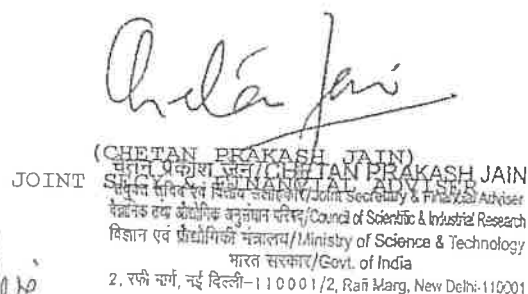 Chetan Jain
(CHETAN PRAKASH JAIN)
चेतन प्रकाश जैन/CHETAN PRAKASH JAIN
JOINT SECY. & FINANCIAL ADVISER
संयुक्त सचिव एवं वित्तीय सलाहकार/Joint Secretary & Financial Adviser
वैज्ञानिक तथा औद्योगिक अनुसंधान परिषद्/Council of Scientific & Industrial Research
विज्ञान एवं प्रौद्योगिकी मंत्रालय/Ministry of Science & Technology
भारत सरकार/Govt. of India
2, रफी मार्ग, नई दिल्ली-110001/2, Rafi Marg, New Delhi-110001